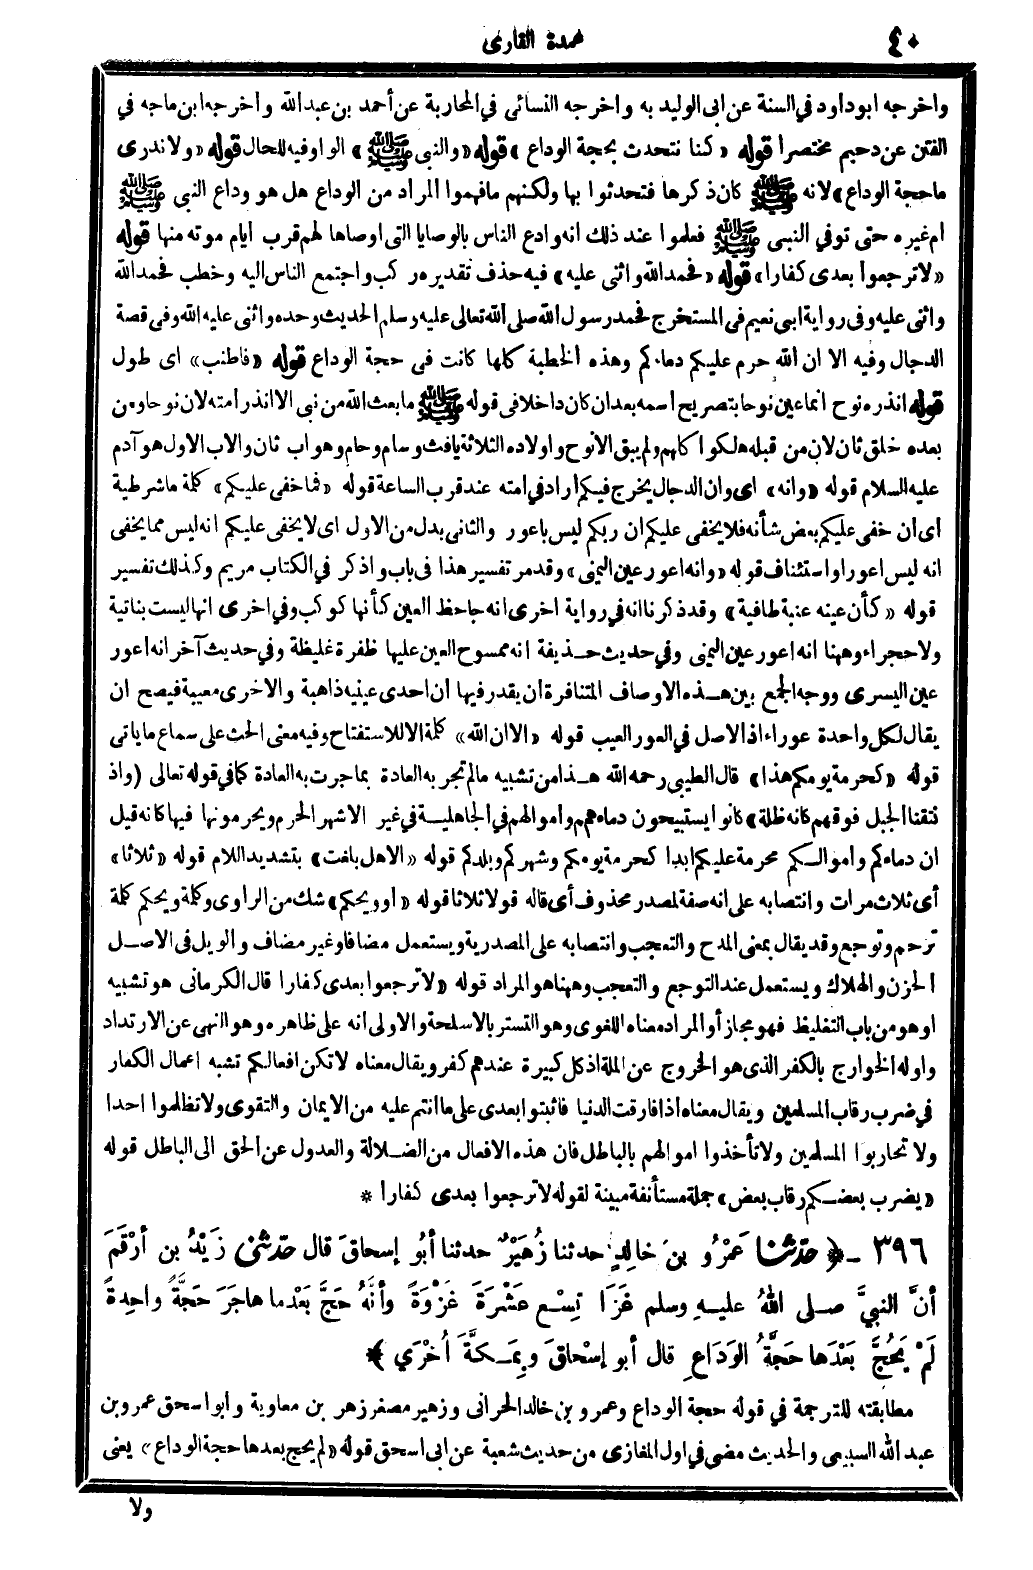 ٤٠
عمدة القارى
واخرجه ابوداود فى السنة عن ابى الوليد به واخرجه النسائى فى المحاربة عن أحمد بن عبدالله واخرجه ابن ماجه فى
الفتن عن دحيم مختصرا قوله «كنا نتحدث بحجة الوداع» قوله «والنبى ﷺ» الواوفيه للحال قوله «ولاندرى
ماحجة الوداع» لانه ﷺ كان ذكرها فتحدثوا بها ولكنهم مافهموا المراد من الوداع هل هو وداع النبى ﷺ
ام غيره حتى توفي النبى ﷺ فعلموا عند ذلك انه وادع الناس بالوصايا التى اوصاها لهم قرب ايام موته منها قوله
«لاترجعوا بعدى كفارا» قوله «فحمدالله واثنى عليه» فيه حذف تقديره ركب واجتمع الناس اليه وخطب فحمدالله
واثنى عليه وفى رواية ابى نعيم فى المستخرج فحمد رسول الله صلى الله تعالى عليه وسلم الحديث وحده واثنى عليه الله وفى قصة
الدجال وفيه الا ان الله حرم عليكم دماءكم وهذه الخطبة كلها كانت فى حجة الوداع قوله «فاطنب» اى طول
قوله انذره نوح انماعين نوحا بتصريح اسمه بعدان كان داخلا فى قوله ﷺ مابعث الله من نبى الا انذر أمته لان نوحا ومن
بعده خلق ثان لان من قبله هلكوا كلهم ولم يبق الانوح واولاده الثلاثة يافث وسام وحام وهو اب ثان والاب الاول هو آدم
عليه السلام قوله «وانه» اى وان الدجال يخرج فيكم أراد فى امته عند قرب الساعة قوله «فماخفى عليكم» كلمة ماشرطية
اى ان خفى عليكم بعض شأنه فلا يخفى عليكم ان ربكم ليس باعور والثانى بدل من الاول اى لايخفى عليكم انه ليس مما يخفى
انه ليس اعور او استئناف قوله «وانه اعور عين اليمنى» وقد مر تفسير هذا فى باب واذكر فى الكتاب مريم وكذلك تفسير
قوله «كأن عينه عنبة طافية» وقد ذكرنا انه فى رواية اخرى انه جاحظ العين كأنها كوكب وفى اخرى انها ليست بناتية
ولاحجراء وههنا انه اعور عين اليمنى وفى حديث حـذيفة انه ممسوح العين عليها ظفرة غليظة وفى حديث آخر انه اعور
عين اليسرى ووجه الجمع بين هـذه الاوصاف المتنافرة ان يقدر فيها ان احدى عينيه ذاهبة والاخرى معيبة فيصح ان
يقال لكل واحدة عوراء اذ الاصل فى العور العيب قوله «الا ان الله» كلمة الا للاستفتاح وفيه معنى الحث على سماع ماياتى
قوله «كحرمة يومكم هذا» قال الطيبى رحمه الله هـذا من تشبيه مالم تجر به العادة بماجرت به العادة كما فى قوله تعالى (واذ
نتقنا الجبل فوقهم كانه ظلة) كانوا يستبيحون دماءهم واموالهم فى الجاهليـة فى غير الاشهر الحرم ويحرمونها فيها كانه قيل
ان دماءكم واموالـكم محرمة عليكم ابدا كحرمة يومكم وشهركم وبلدكم قوله «الاهل بلغت» بتشديد اللام قوله «ثلاثا»
أى ثلاث مرات وانتصابه على انه صفة لمصدر محذوف أى قاله قولا ثلاثا قوله «اوويحكم» شك من الراوى وكلمة ويحكم كلمة
ترحم وتوجع وقد يقال بمعنى المدح والتعجب وانتصابه على المصدرية ويستعمل مضافا وغير مضاف والويل فى الاصـل
الحزن والهلاك ويستعمل عند التوجع والتعجب وههنا هو المراد قوله «لاترجعوا بعدى كفارا قال الكرمانى هو تشبيه
اوهو من باب التغليظ فهو مجاز أو المراد معناه اللغوى وهو التستر بالاسلحة والاولى انه على ظاهره وهو النهى عن الارتداد
واوله الخوارج بالكفر الذى هو الخروج عن الملة اذ كل كبيرة عندهم كفر ويقال معناه لا تكن افعالكم تشبه اعمال الكفار
فى ضرب رقاب المسلمين ويقال معناه اذا فارقت الدنيا فاثبتوا بعدى على ما انتم عليه من الايمان والتقوى ولا تظلموا احدا
ولا تحاربوا المسلمين ولا تأخذوا اموالهم بالباطل فان هذه الافعال من الضـلالة والعدول عن الحق الى الباطل قوله
«يضرب بعضـكم رقاب بعض» جملة مستأنفة مبينة لقوله لاترجعوا بعدى كفارا *
٣٩٦ ـ ﴿ حدّثنا عَمْرُو بنُ خالِدٍ حدثنا زُهَيْرٌ حدثنا أبُو إسحاقَ قال حدّثنى زَيْدُ بن أرْقَمَ
أنَّ النبيَّ صـلى اللهُ عليـهِ وسلم غَزَا تِسْعَ عَشْرَةَ غَزْوَةً وأنَّهُ حَجَّ بَعْدَما هاجَرَ حَجَّةً واحِدةً
لَمْ يَحُجَّ بَعْدَها حَجَّةُ الوَدَاعِ قال أبو إسْحاقَ وبِمَـكَّةَ اُخْرَي ﴾
مطابقته للترجمة فى قوله حجة الوداع وعمرو بن خالد الحرانى وزهير مصغر زهر بن معاوية وأبو اسحق عمرو بن
عبد الله السبيعى والحديث مضى فى اول المغازى من حديث شعبة عن ابى اسحق قوله «لم يحج بعدها حجة الوداع» يعنى
ولا